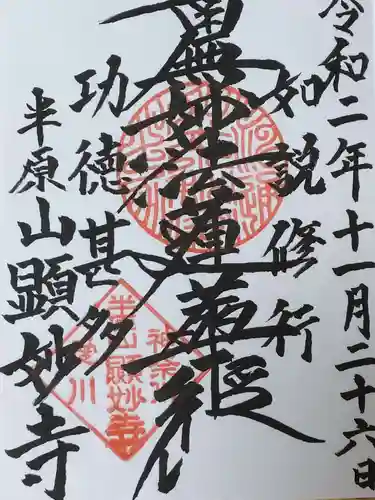 令和二年十一月二十六日
如説修行
南無妙法蓮華経
功徳甚多
半原山顕妙寺
半原山顕妙寺